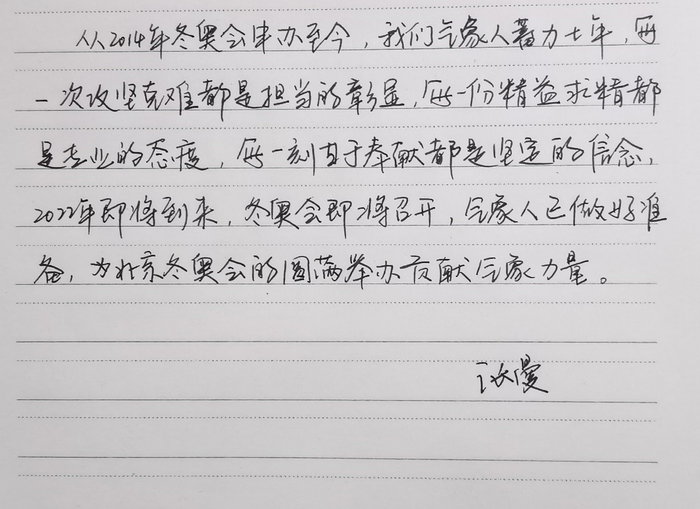 从2014年冬奥会申办至今，我们气象人蓄力七年，每
一次攻坚克难都是担当的彰显，每一份精益求精都
是专业的态度，每一刻甘于奉献都是坚定的信念，
2022年即将到来，冬奥会即将召开，气象人已做好准
备，为北京冬奥会的圆满举办贡献气象力量。